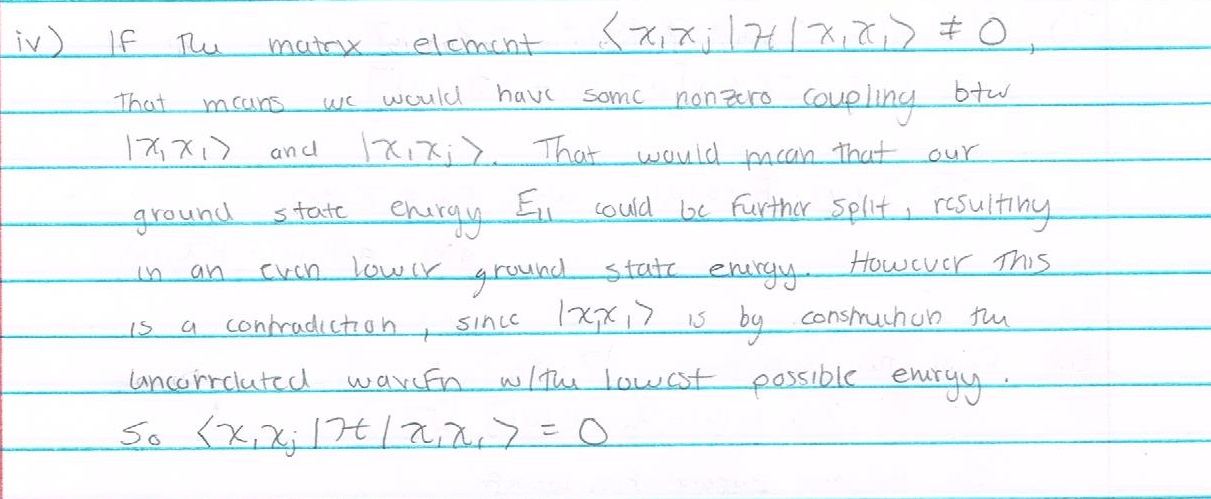 iv) If the matrix element ⟨χ₁χⱼ|H|χ₁χ₁⟩ ≠ 0,
that means we would have some nonzero coupling btw
|χ₁χ₁⟩ and |χ₁χⱼ⟩. That would mean that our
ground state energy E₁₁ could be further split, resulting
in an even lower ground state energy. However this
is a contradiction, since |χ₁χ₁⟩ is by construction the
uncorrelated wavefn w/the lowest possible energy.
So ⟨χ₁χⱼ|H|χ₁χ₁⟩ = 0